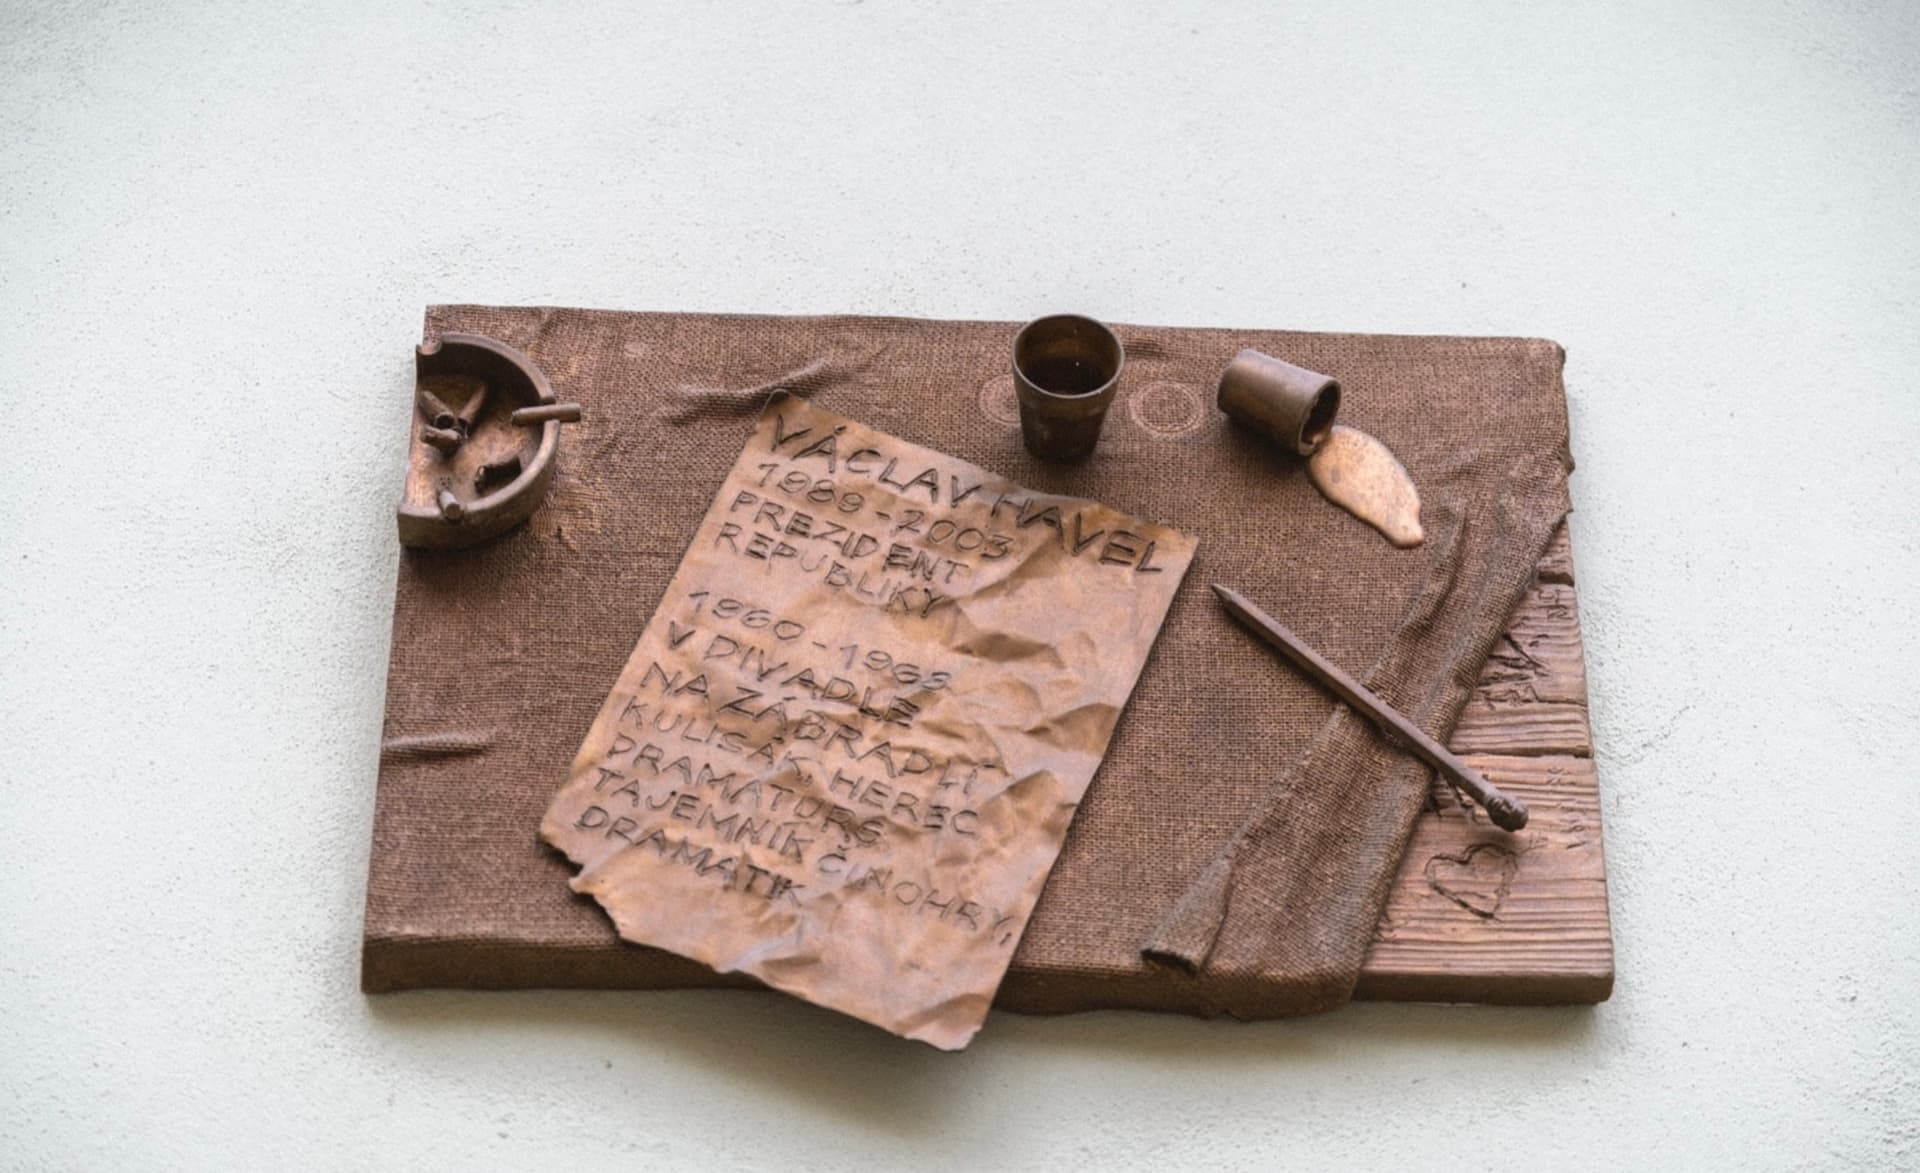 VÁCLAV HAVEL
1989-2003
PREZIDENT
REPUBLIKY
1960-1968
V DIVADLE
NA ZÁBRADLÍ
KULISÁK, HEREC
DRAMATURG
TAJEMNÍK ČINOHRY,
DRAMATIK